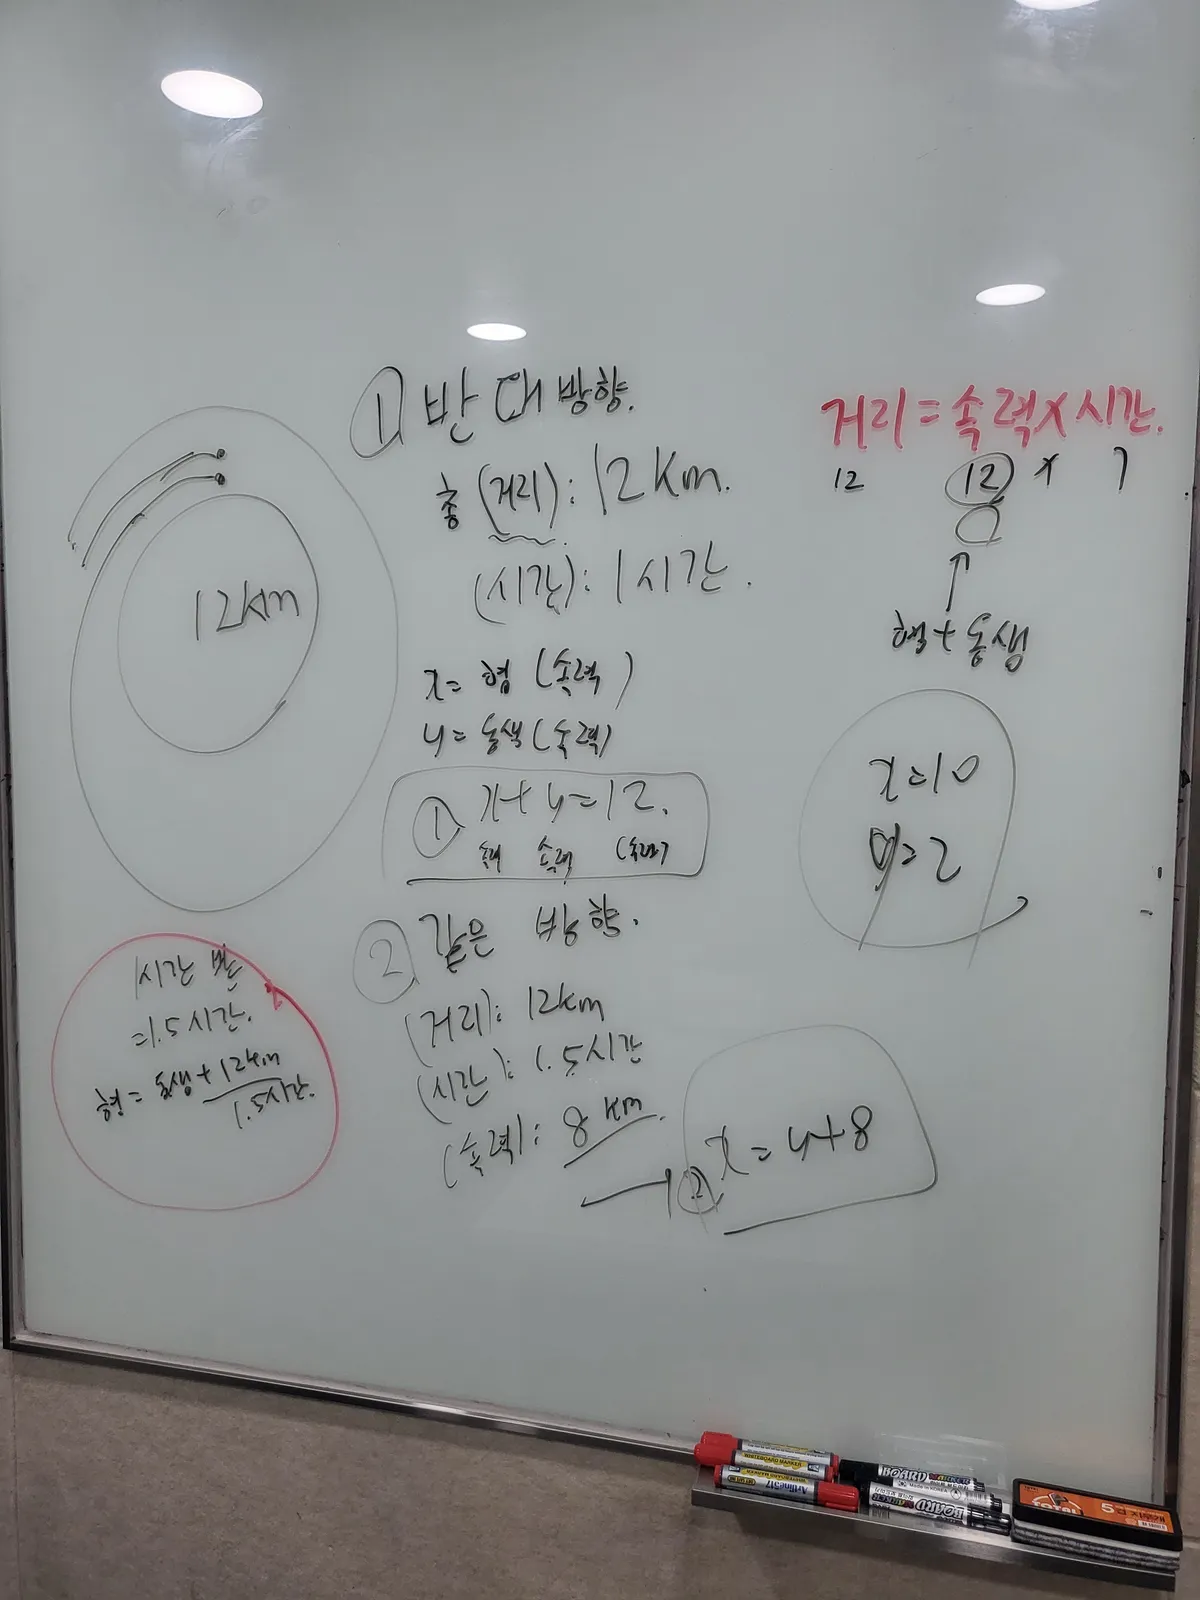 12km
① 반대방향.
총 (거리): 12km.
(시간): 1시간.
x= 형 (속력)
y= 동생 (속력)
① x+y=12.
속력 속력 (속력)
② 같은 방향.
(거리): 12km
(시간): 1.5시간
(속력): 8km
② x=y+8
거리=속력×시간.
12 12 ×
형+동생
x=10
y=2
1시간 반
=1.5시간.
형= 동생+ 12km
1.5시간.
WHITEBOARD MARKER
Artline517
BOARD MARKER
BOARD
TOTAL